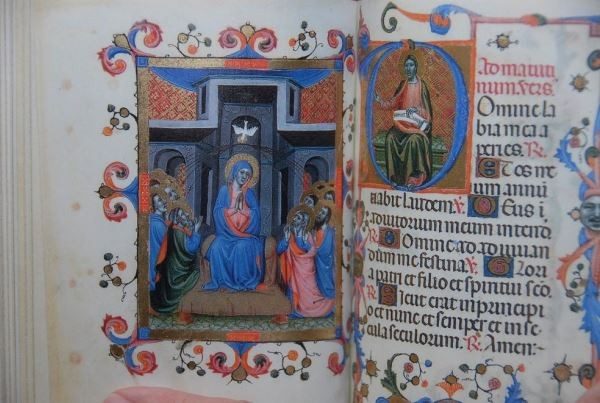 Ad matuti
num. vers.
Domine la
bia mea a
peries. R.
Et os me
um annu
tiabit laudem. V. Deus i
adiutorium meum intende
R. Domine ad adiuuan
dum me festina. V. Glori
a patri et filio et spiritui sco.
R. Sicut erat in principi
o et nunc et semper et in se
cula seculorum. R. Amen.